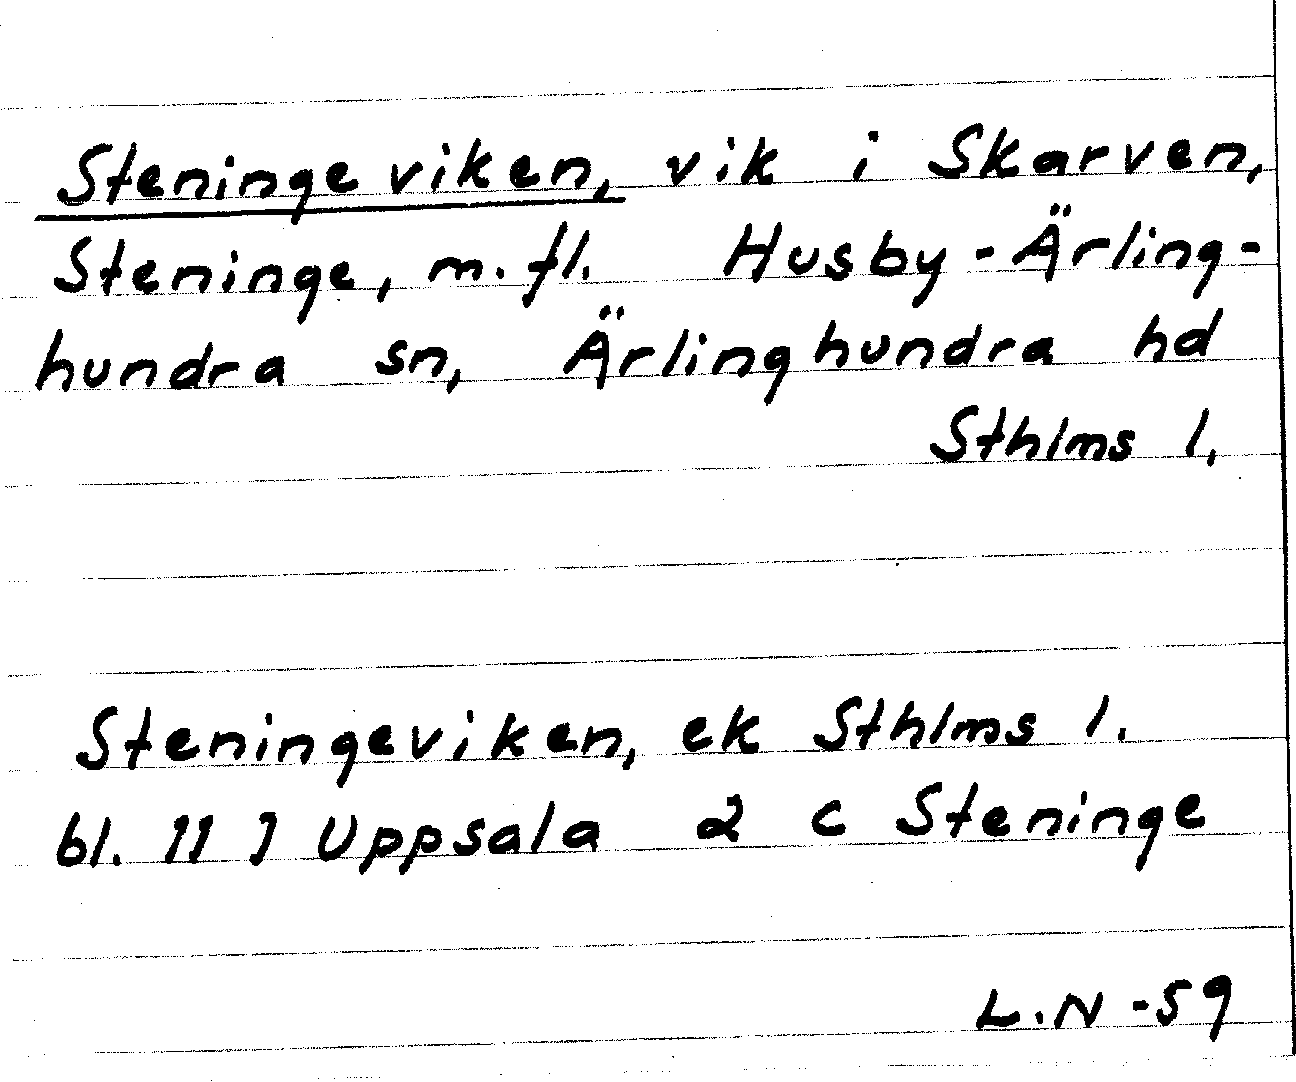 Steningeviken, vik i Skarven,
Steninge, m.fl. Husby-Ärling-
hundra sn, Ärlinghundra hd
Sthlms l,
Steningeviken, ek Sthlms l.
bl. 11 I Uppsala 2 c Steninge
L.N -59